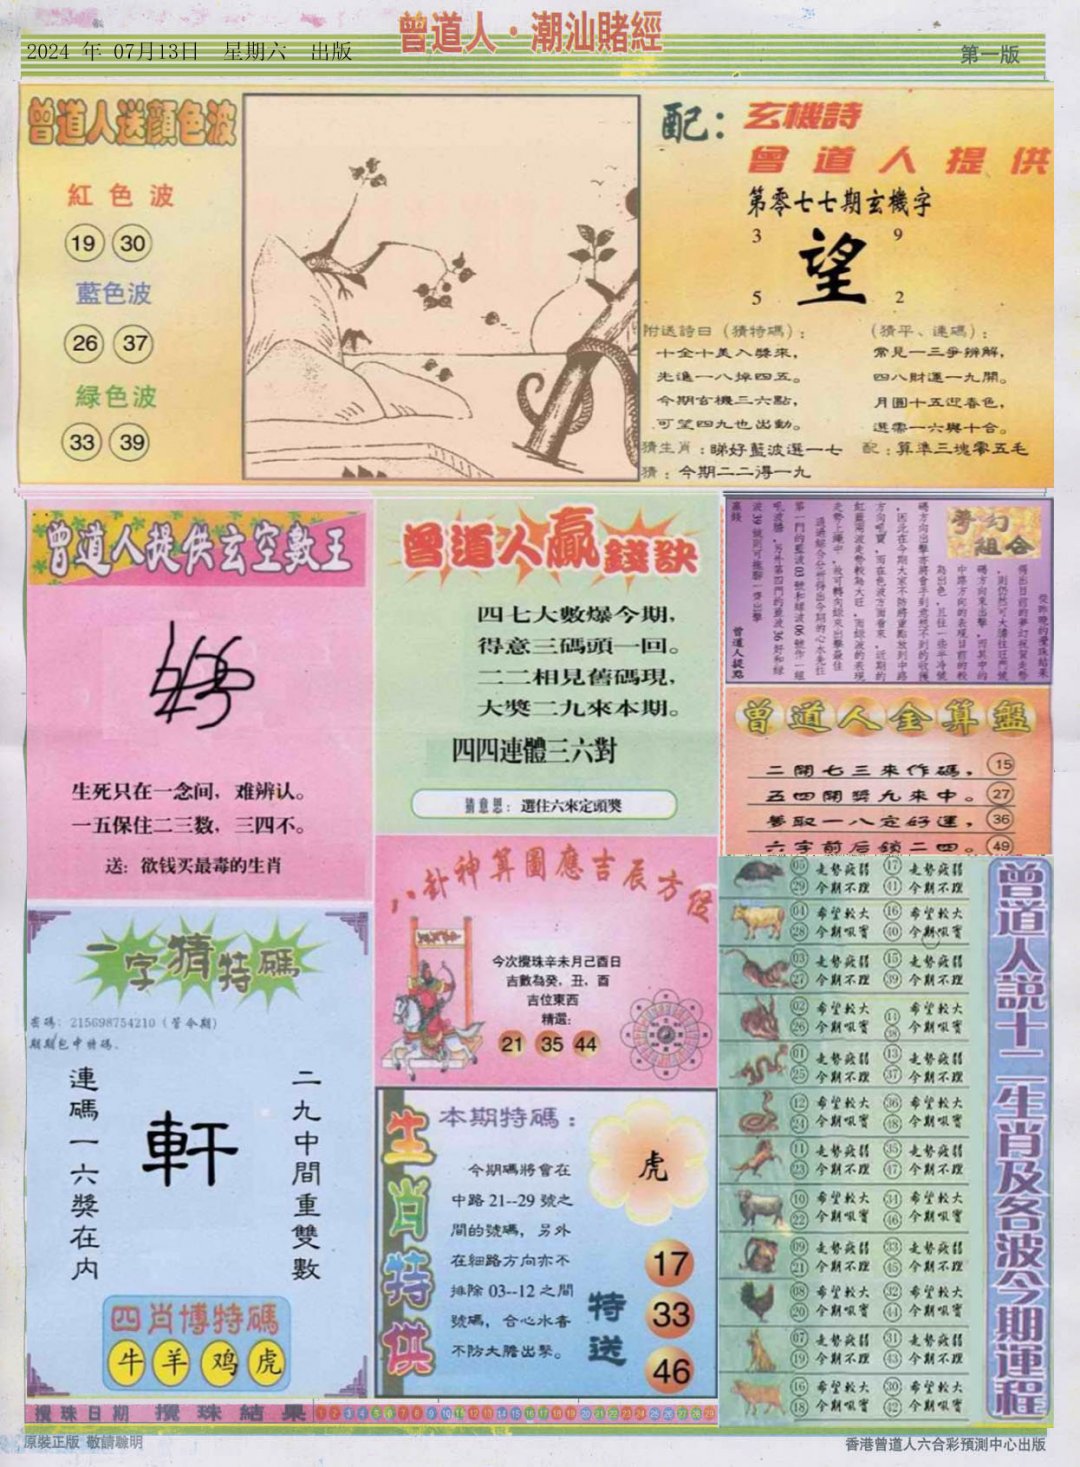 曾道人·潮汕賭經
2024 年 07月13日 星期六 出版
第一版
曾道人送顔色波
紅色波
19 30
藍色波
26 37
緑色波
33 39
配：
玄機詩
曾道人提供
第零七七期玄機字
3 9
望
5 2
附送詩曰（猜特碼）：
十全十美入獎來，
先進一八掉四五。
今期玄機三六點，
可望四九也出動。
猜生肖：睇好藍波選一七
猜：今期二二得一九
（猜平、連碼）：
常見一三爭辨解，
四八財運一九開。
月圓十五迎春色，
選需一六與十合。
配：算準三塊零五毛
曾道人提供玄空數王
生死只在一念间，难辨认。
一五保住二三数，三四不。
送：欲钱买最毒的生肖
曾道人贏錢訣
四七大數爆今期，
得意三碼頭一回。
二二相見舊碼現，
大獎二九來本期。
四四連體三六對
猜意思：選住六來定頭獎
夢幻
組合
曾道人提點
曾道人金算盤
二開七三來作碼， 15
五四開獎九來中。 27
夢取一八定好運， 36
六字前后鎖二四。 49
一字猜特碼
密碼：215698754210（管令期）
期期包中特碼。
連碼一六獎在内
軒
二九中間重雙數
四肖博特碼
牛 羊 鸡 虎
八卦神算圖應吉辰方位
今次攪珠辛未月己酉日
吉數為癸，丑，酉
吉位東西
精選：
21 35 44
生肖特供
本期特碼：
今期碼將會在
中路 21--29 號之
間的號碼，另外
在細路方向亦不
排除 03--12 之間
號碼，合心水者
不防大膽出擊。
虎
特送
17
33
46
05 17 走勢疲弱 走勢疲弱
29 41 今期不理 今期不理
04 16 希望較大 希望較大
28 40 今期吼實 今期吼實
03 15 走勢疲弱 走勢疲弱
27 39 今期不理 今期不理
02 14 希望較大 希望較大
26 38 今期吼實 今期吼實
01 13 走勢疲弱 走勢疲弱
25 37 今期不理 今期不理
12 36 希望較大 希望較大
24 48 今期吼實 今期吼實
11 35 走勢疲弱 走勢疲弱
23 47 今期不理 今期不理
10 34 希望較大 希望較大
22 46 今期吼實 今期吼實
09 33 走勢疲弱 走勢疲弱
21 45 今期不理 今期不理
08 32 希望較大 希望較大
20 44 今期吼實 今期吼實
07 31 走勢疲弱 走勢疲弱
19 43 今期不理 今期不理
30 希望較大 希望較大
18 42 今期吼實 今期吼實
曾道人説十二生肖及各波今期運程
攪珠日期 攪珠結果
原裝正版 敬請聯明
香港曾道人六合彩預測中心出版